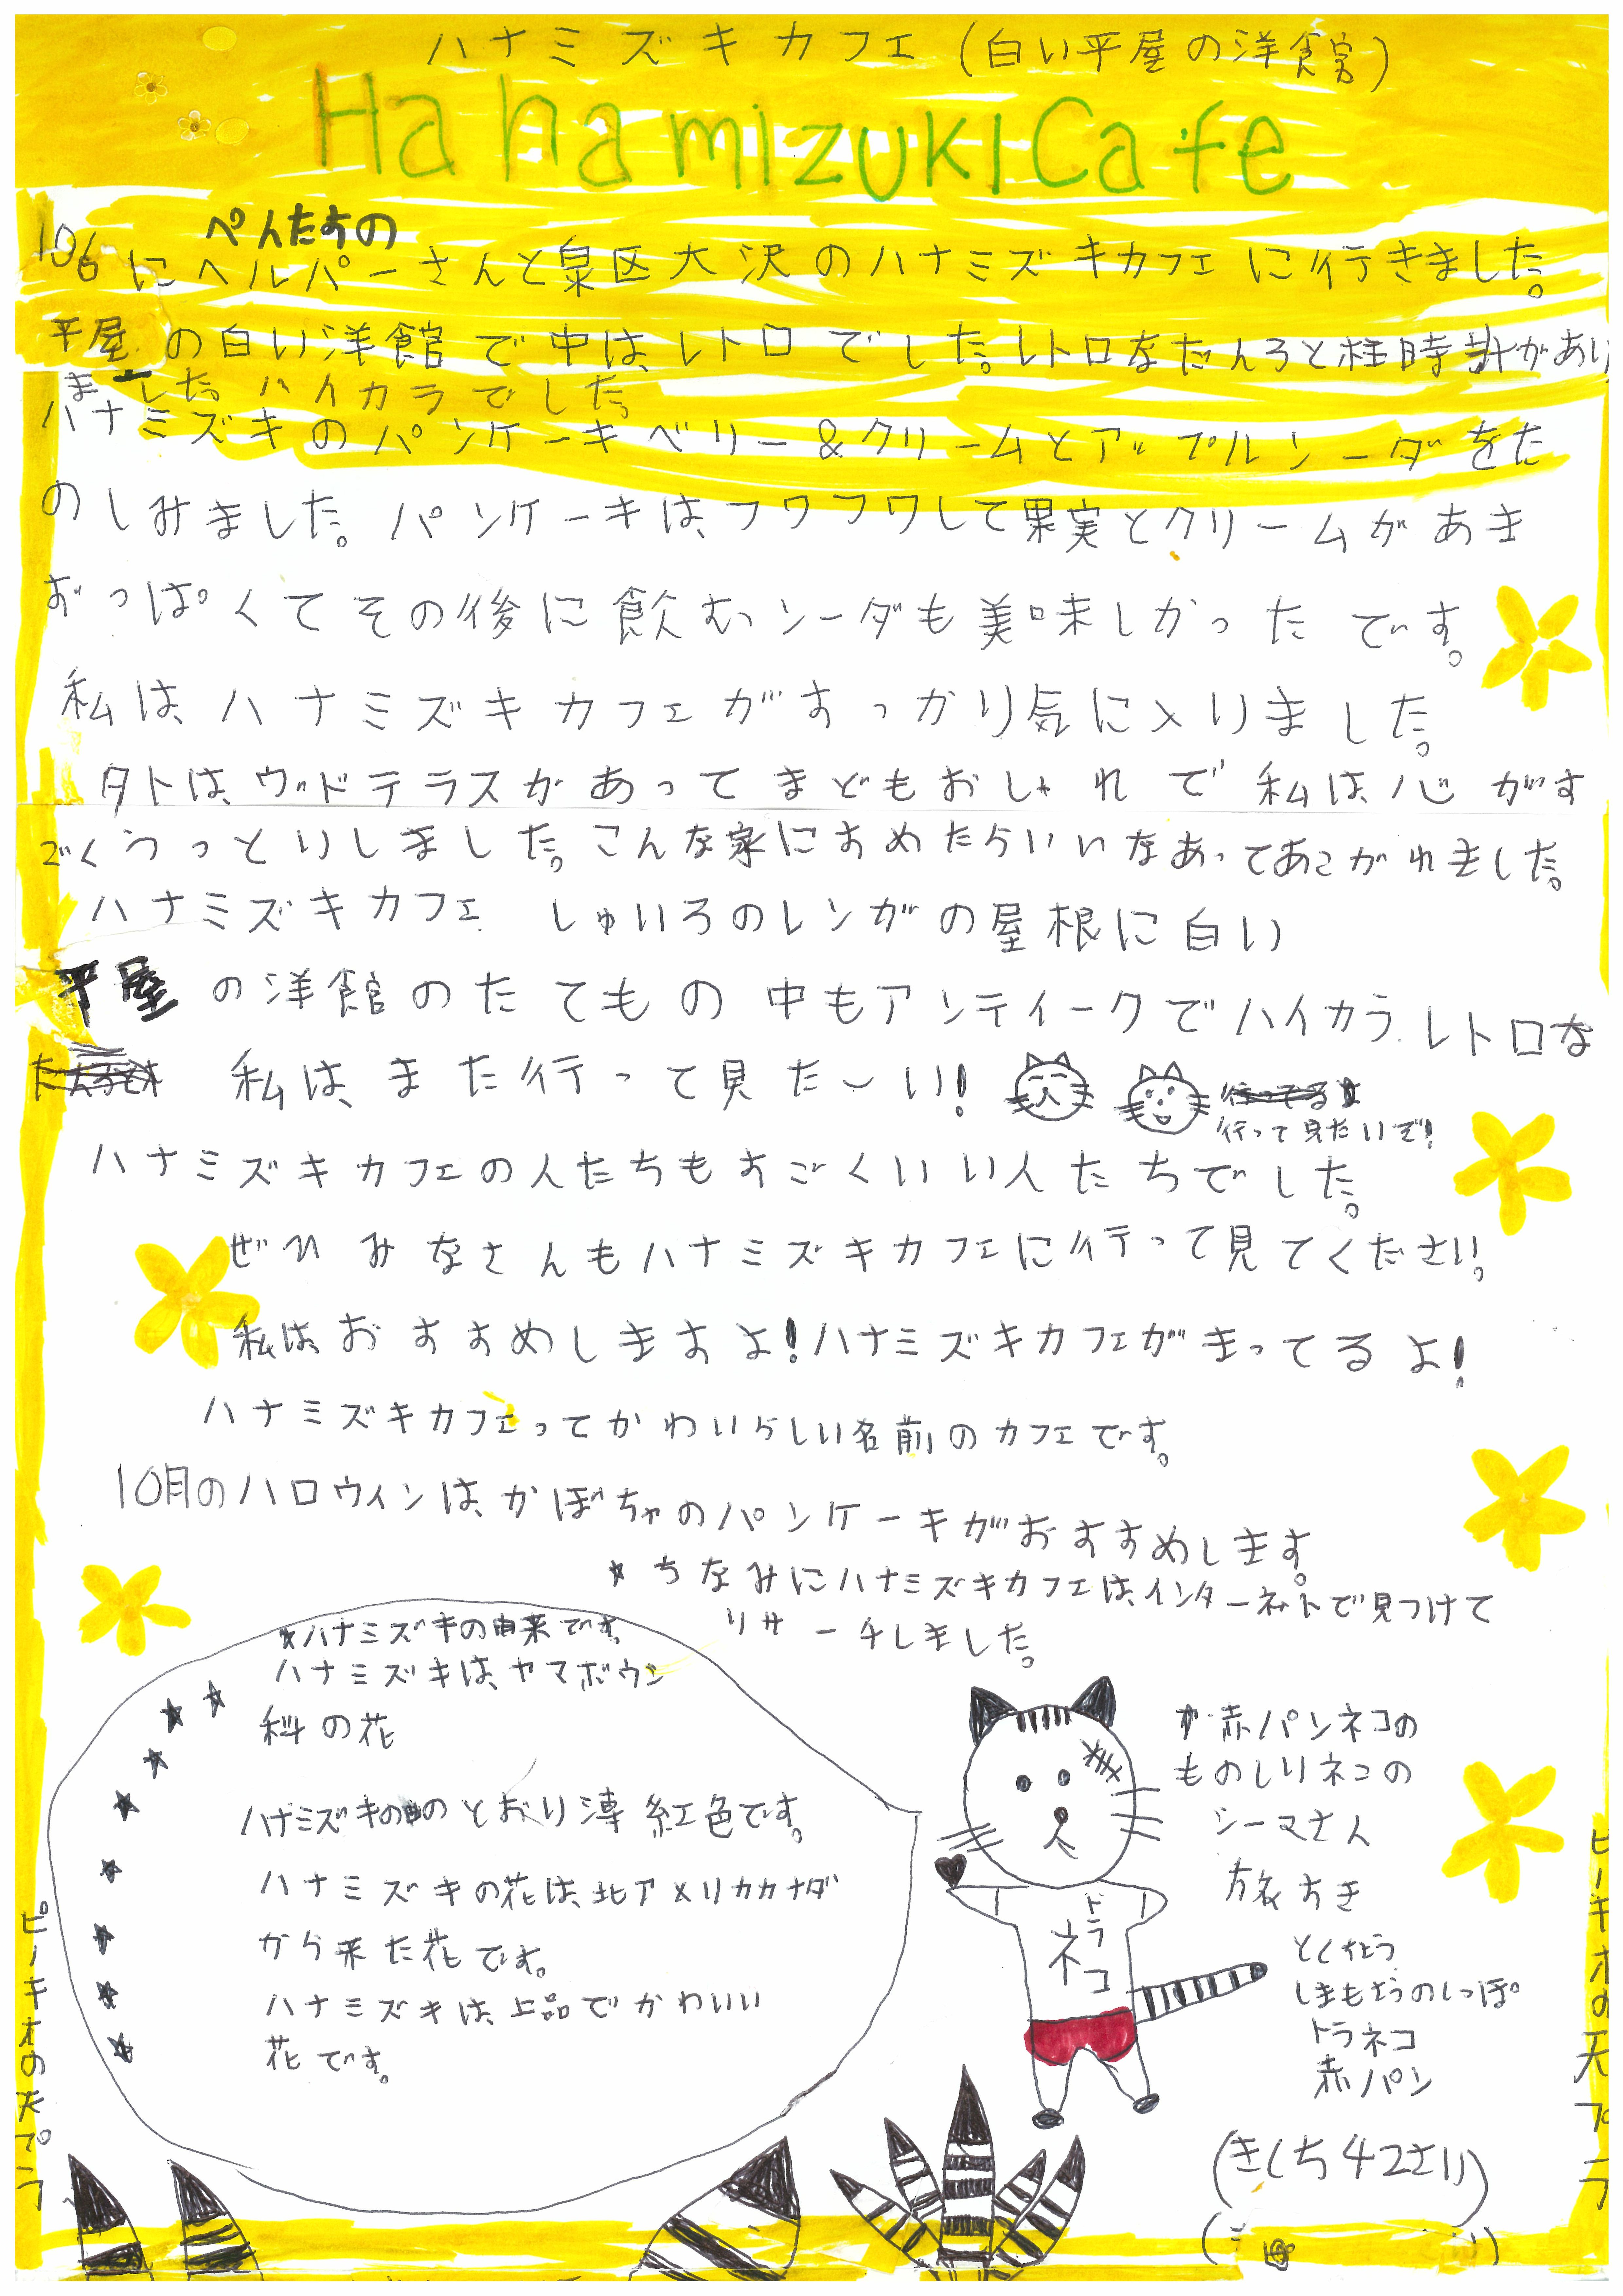 ハナミズキカフェ(白い平屋の洋館)
Hanamizuki Cafe
ぺんたすの
10/6にヘルパーさんと泉区大沢のハナミズキカフェに行きました。
平屋の白い洋館で中は、レトロでした。レトロなだんろと柱時計があり
ました。ハイカラでした。
ハナミズキのパンケーキベリー&クリームとアップルソーダをた
のしみました。パンケーキは、フワフワして果実とクリームがあま
ずっぱくてその後に飲むソーダも美味しかったです。
私は、ハナミズキカフェがすっかり気に入りました。
外は、ウッドテラスがあってまどもおしゃれで私は、心がす
ごくうっとりしました。こんな家にすめたらいいなあってあこがれました。
ハナミズキカフェ しゅいろのレンガの屋根に白い
平屋の洋館のたてもの中もアンティークでハイカラ レトロな
私は、また行って見たーい!
行って見たいぞ!
ハナミズキカフェの人たちもすごくいい人たちでした。
ぜひみなさんもハナミズキカフェに行って見てください。
私は、おすすめしますよ!ハナミズキカフェがまってるよ!
ハナミズキカフェってかわいらしい名前のカフェです。
10月のハロウィンは、かぼちゃのパンケーキがおすすめします。
★ちなみにハナミズキカフェは、インターネットで見つけて
リサーチしました。
★ハナミズキの由来です。
ハナミズキは、ヤマボウシ
科の花
ハナミズキののとおり薄紅色です。
ハナミズキの花は、北アメリカカナダ
から来た花です。
ハナミズキは、上品でかわいい
花です。
赤パンネコの
ものしりネコの
シーマさん
旅すき
とくちょう
しまもようのしっぽ
トラネコ
赤パン
トラ
ネコ
ピノキオの天プラ
ピノキオの天プラ
(きくち42さい)